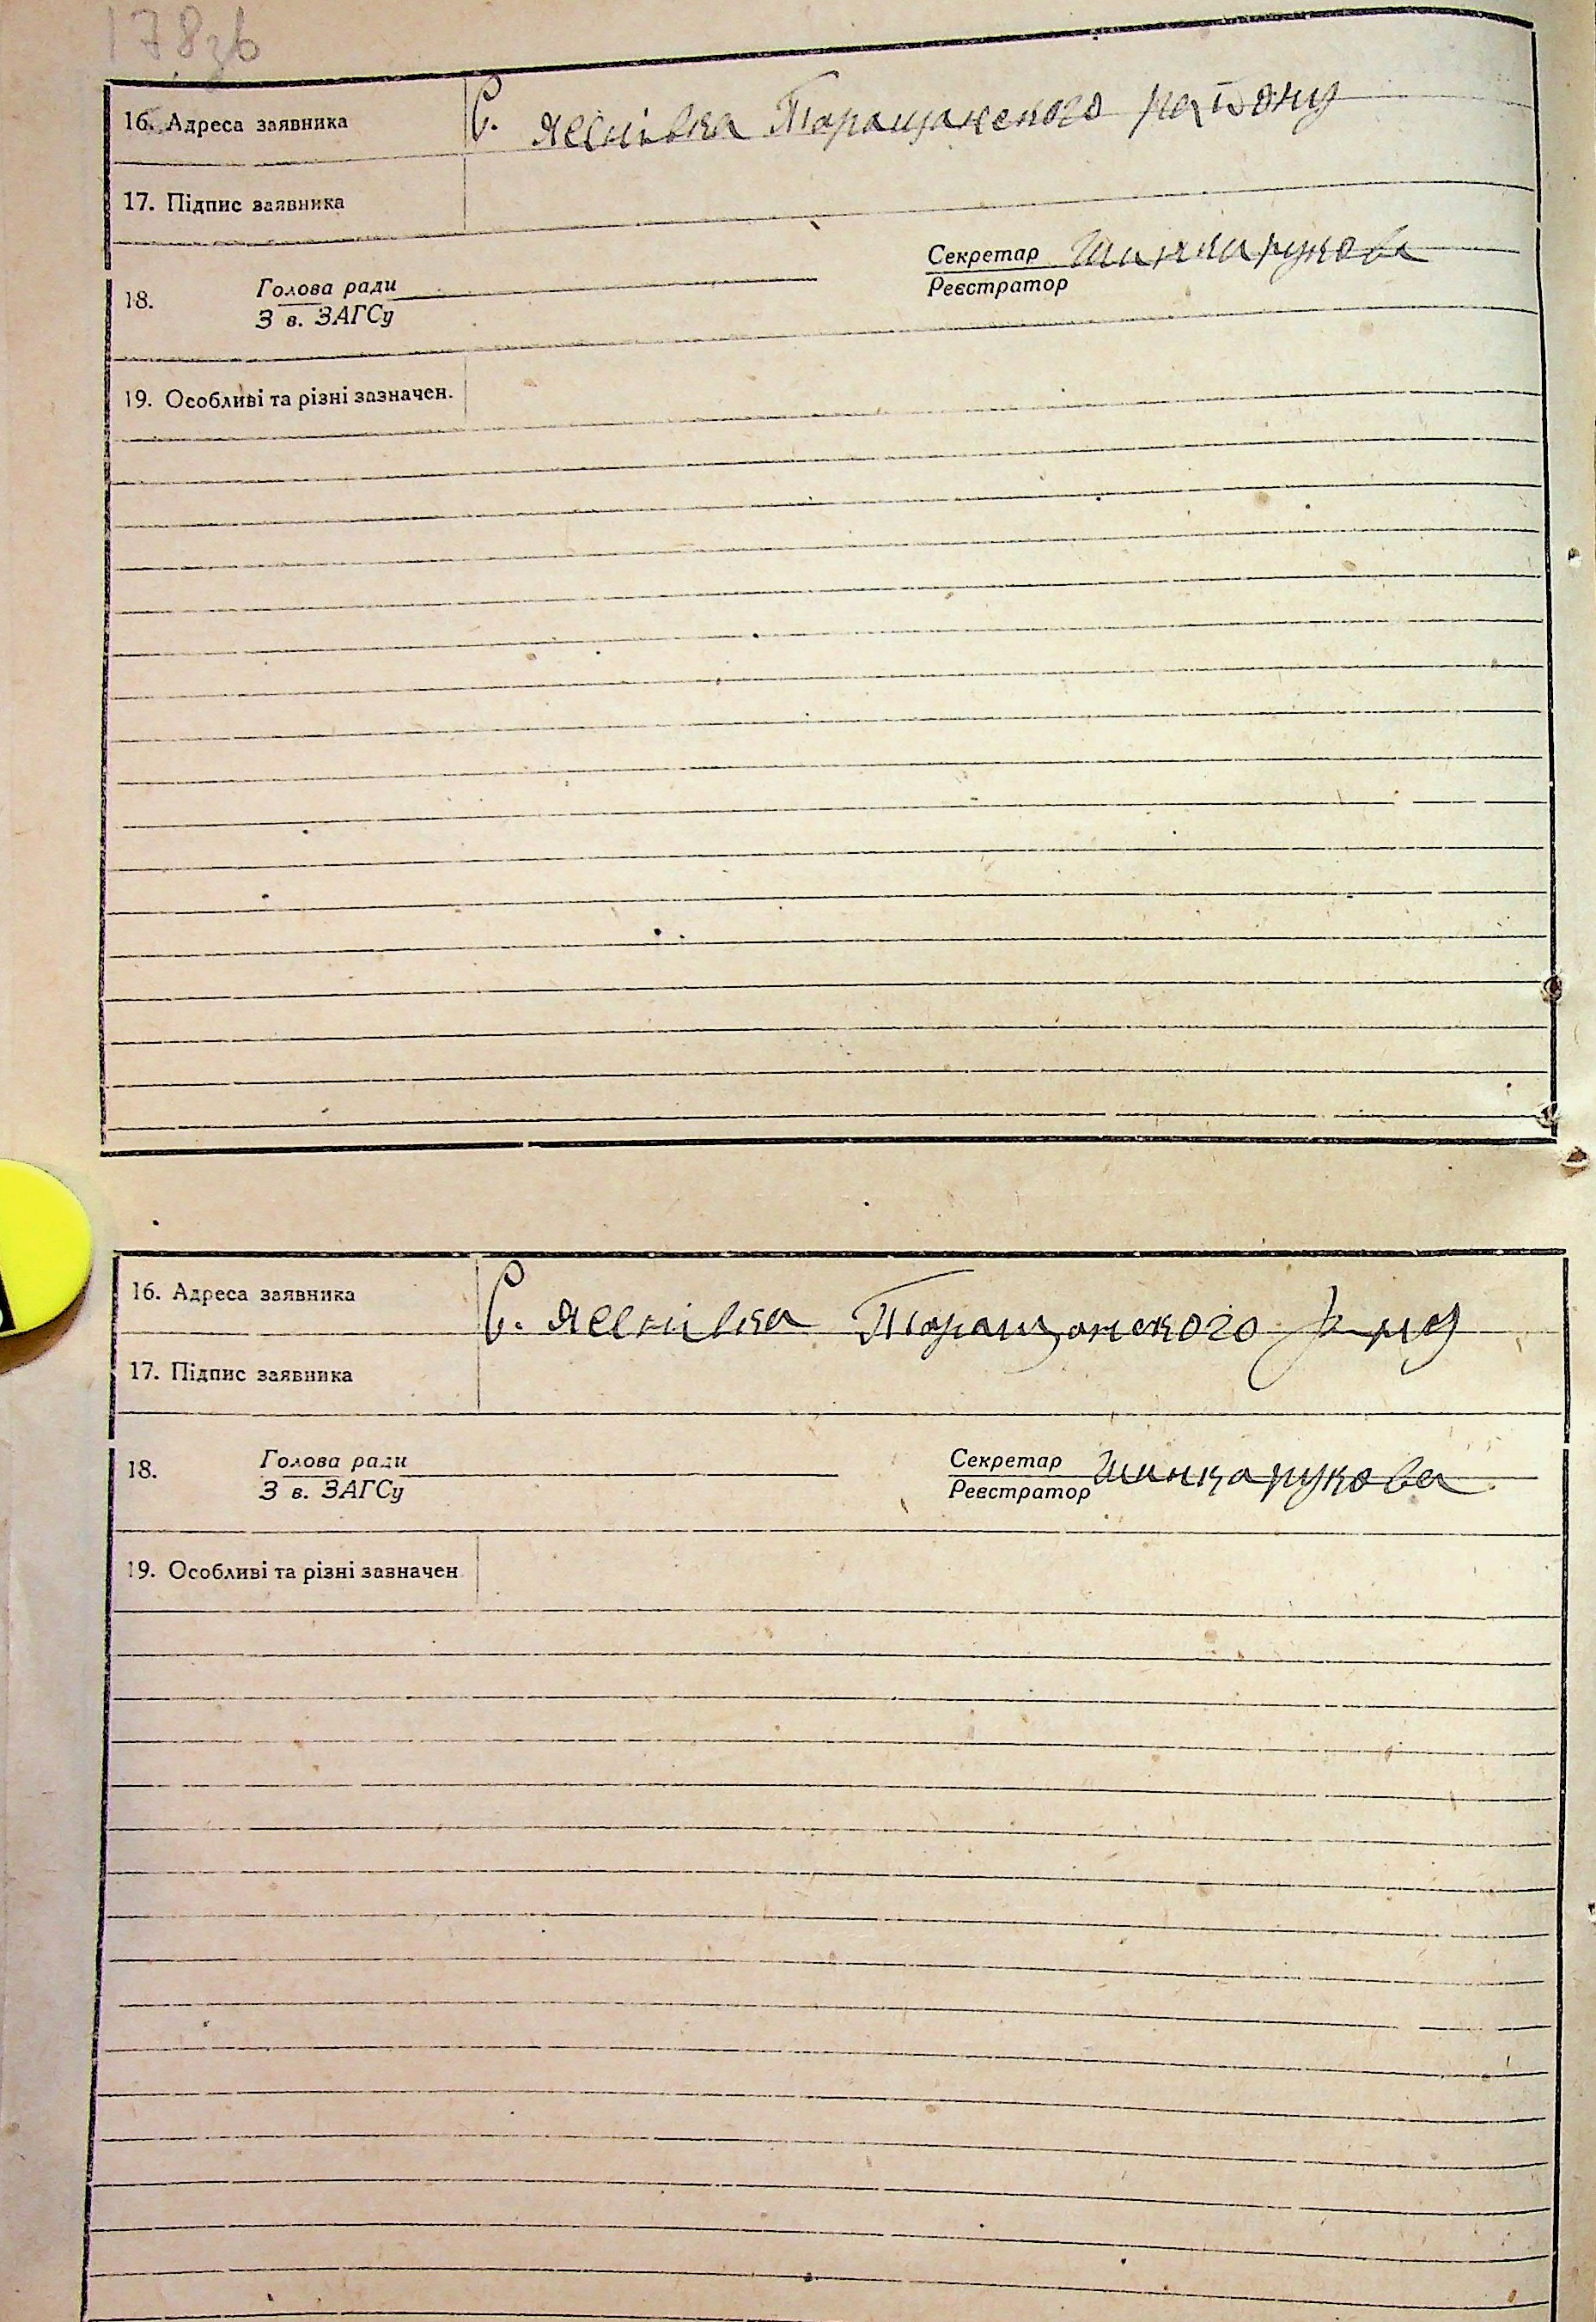 178зв
16. Адреса заявника С. Яснівка Таращанского району
17. Підпис заявника
Секретар Шинкарукова
18. Голова ради
З в. ЗАГСу
Реєстратор
19. Особливі та різні зазначен.
16. Адреса заявника С. Яснівка Таращанского р-ну
17. Підпис заявника
18. Голова ради Секретар Шинкарукова
З в. ЗАГСу Реєстратор
19. Особливі та різні зазначен